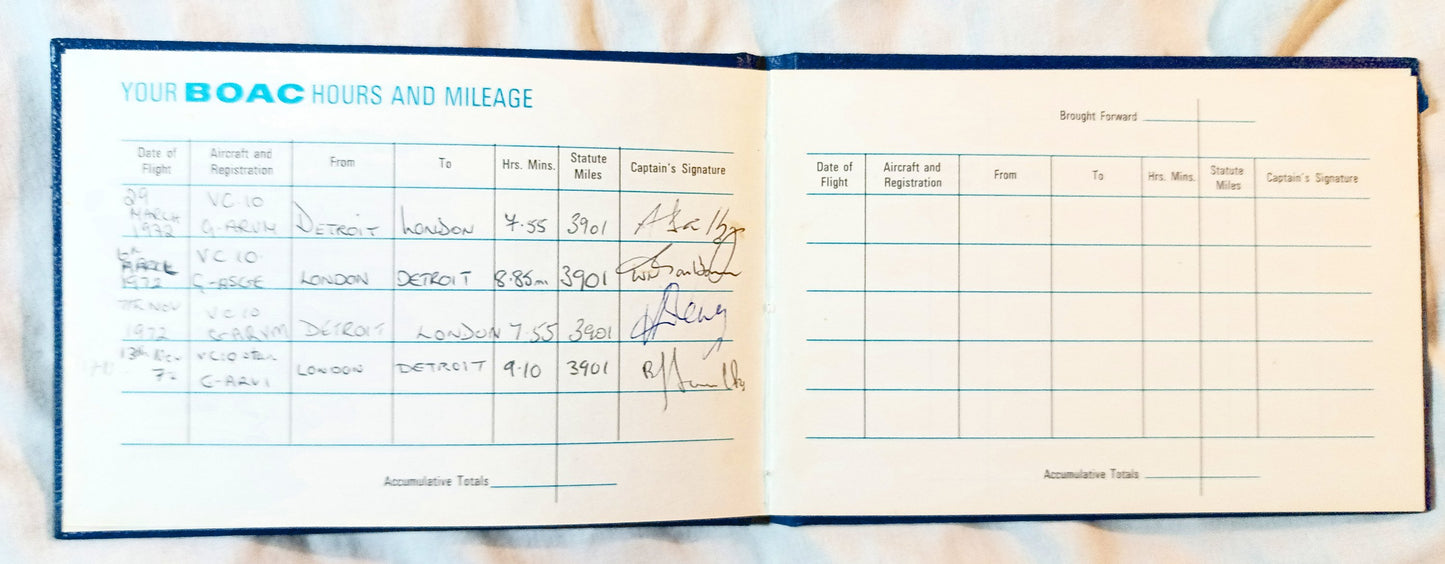 YOUR BOAC HOURS AND MILEAGE
Date of Flight Aircraft and Registration From To Hrs. Mins. Statute Miles Captain's Signature
29 MARCH 1972 VC-10 G-ARVM DETROIT LONDON 7.55 3901
1972 VC 10. G-ASGE LONDON DETROIT 3901
7TH NOV 1972 VC 10 G-ARVM DETROIT LONDON 7.55 3901
13th Nov 72 VC10 G-ARVI LONDON DETROIT 9.10 3901
Accumulative Totals
Brought Forward
Date of Flight Aircraft and Registration From To Hrs. Mins. Statute Miles Captain's Signature
Accumulative Totals